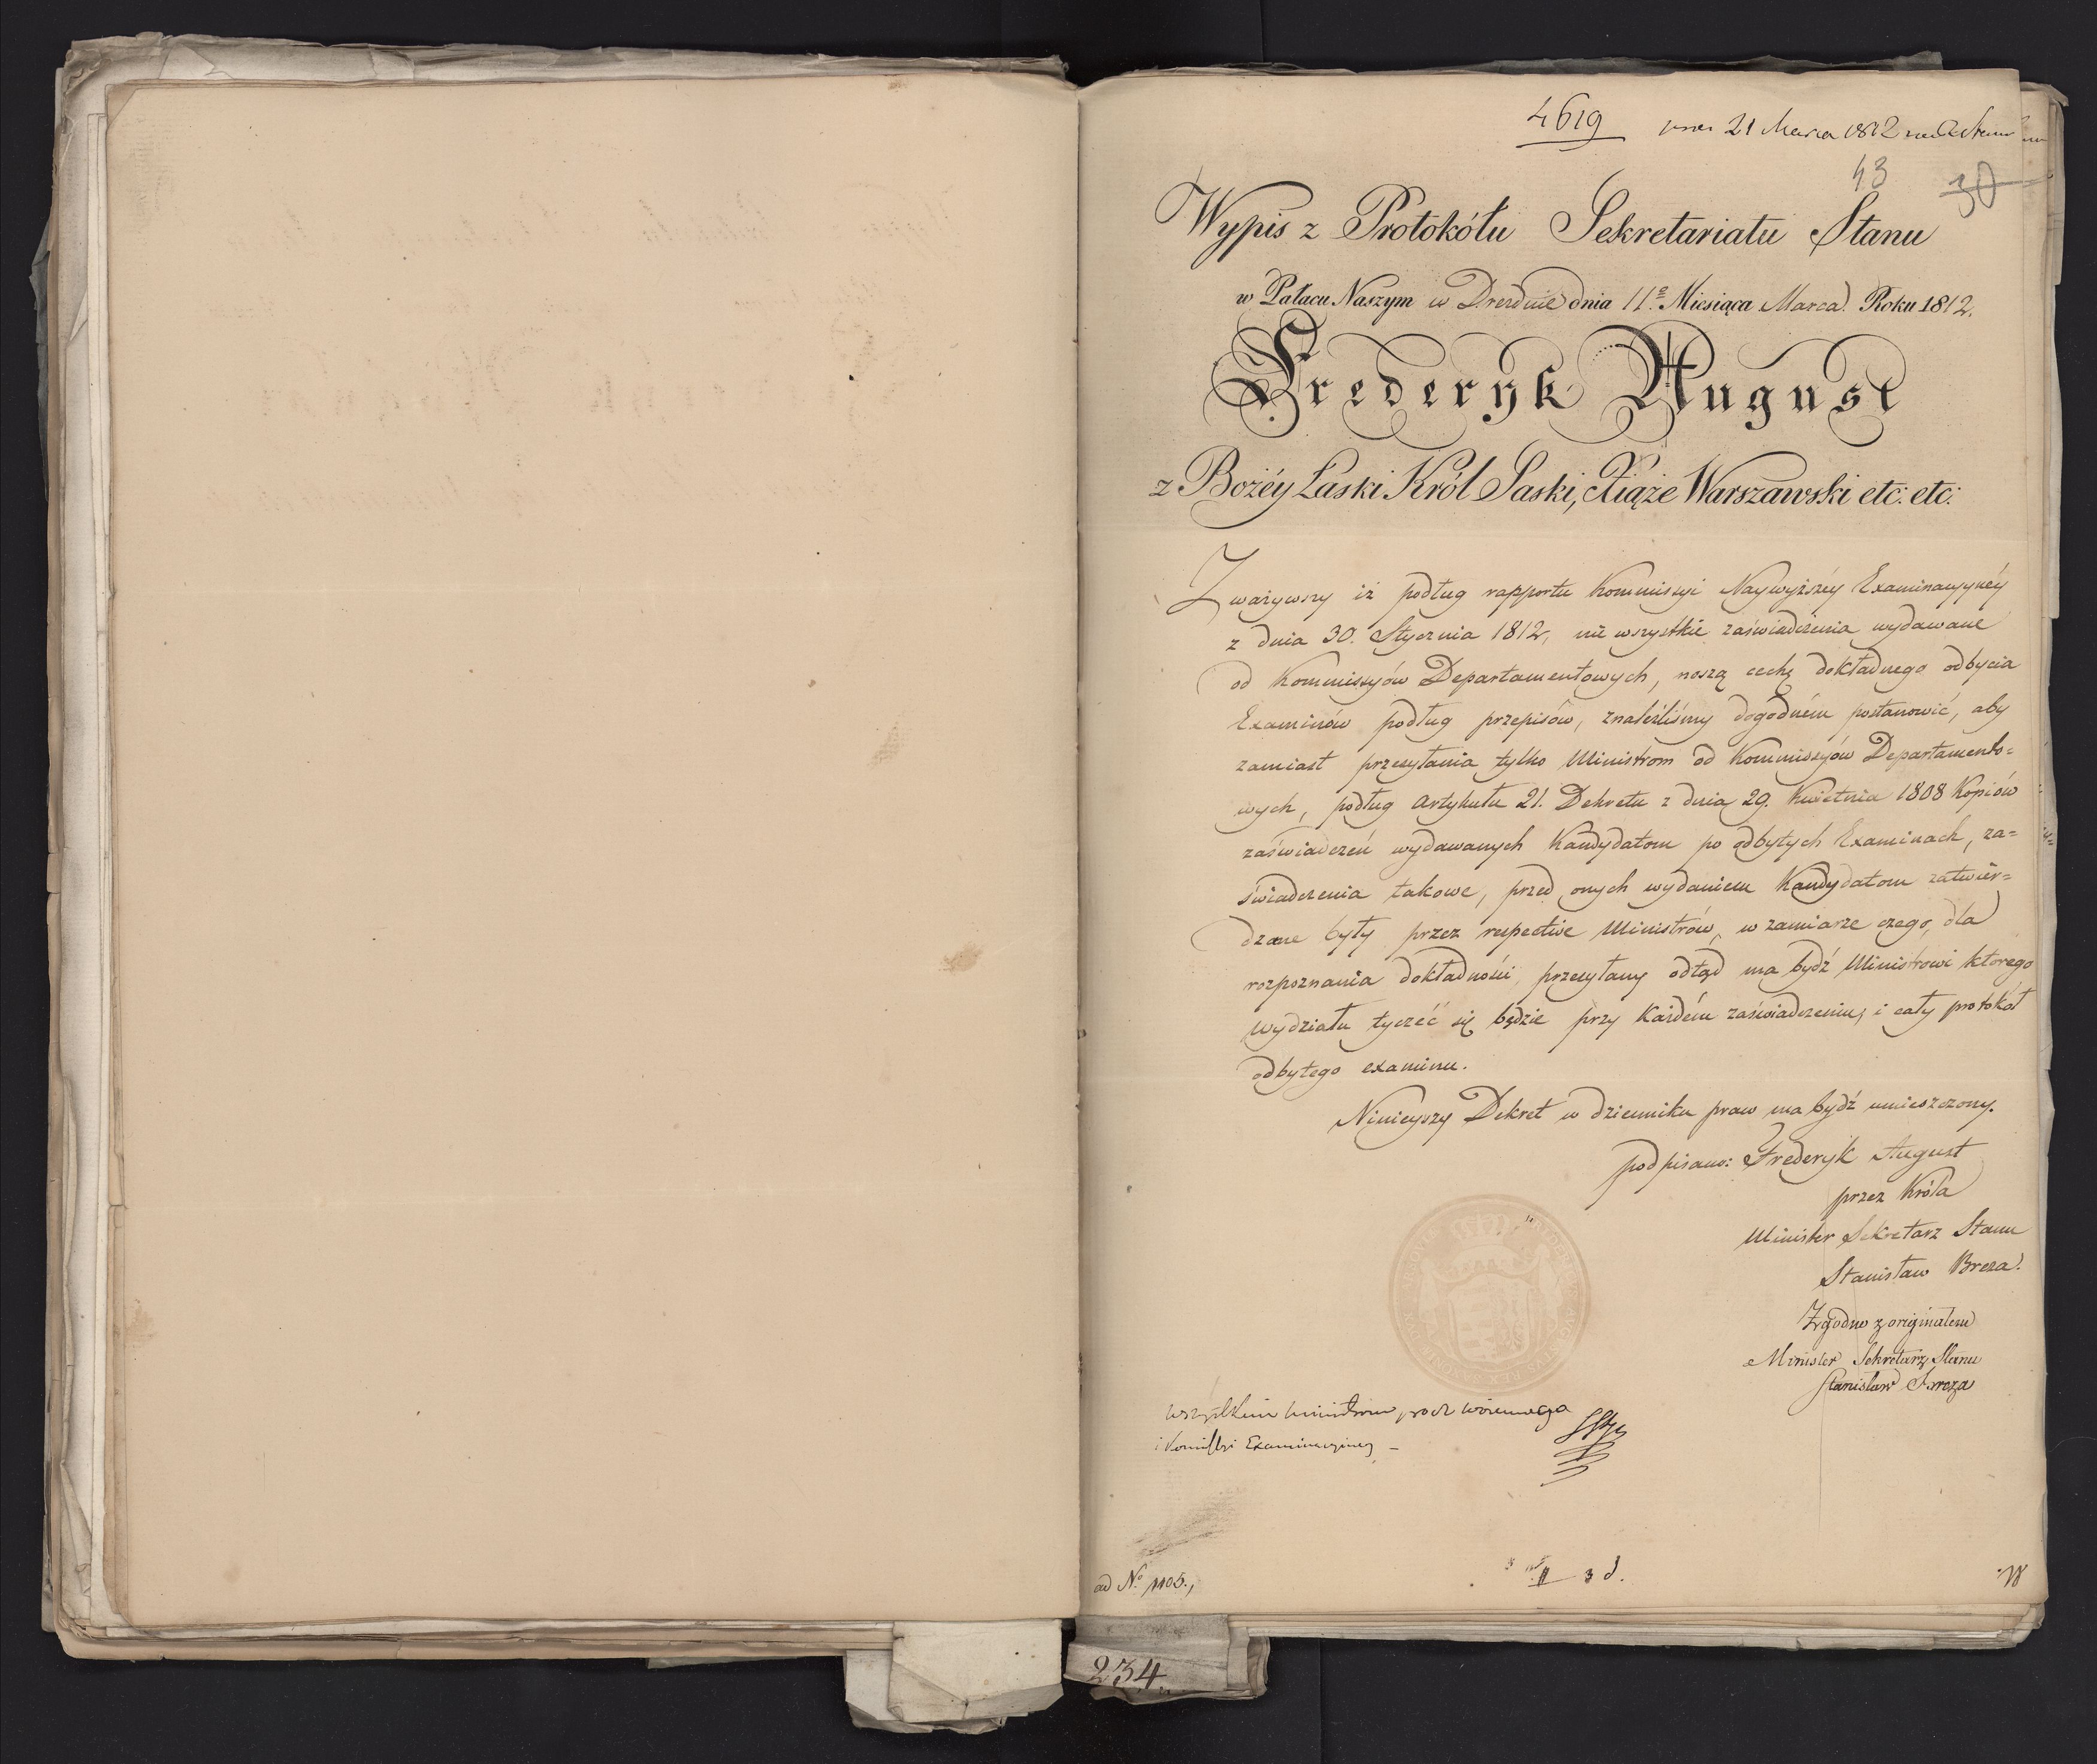 4619 21 Marca 1812
43 30
Wypis z Protokółu Sekretariatu Stanu
w Pałacu Naszym w Dreźnie dnia 11º Miesiąca Marca Roku 1812.
Frederyk August
z Bożéy Łaski Król Saski, Xiąże Warszawski etc: etc:
Zważywszy iż podług rapportu Kommissyi Naywyższéy Examinacyynéy
z dnia 30. Stycznia 1812, nie wszystkie zaświadczenia wydawane
od Kommissyów Departamentowych, noszą cechę dokładnego odbycia
Examinów podług przepisów, znaleźliśmy dogodném postanowić, aby
zamiast przesyłania tylko Ministrom od Kommissyów Departamento=
wych, podług Artykułu 21. Dekretu z dnia 29. Kwietnia 1808 Kopiów
zaświadczeń wydawanych Kandydatom po odbytych Examinach, za=
świadczenia takowe, przed onych wydaniem Kandydatom zatwier=
dzone były przez respective Ministrów, w zamiarze czego, dla
rozpoznania dokładności, przesyłany odtąd ma bydź Ministrowi którego
wydziału tyczéć się będzie przy każdém zaświadczeniu, i cały protokół
odbytego examinu.
Ninieyszy Dekret w dzienniku praw ma bydź umieszczony.
podpisano: Frederyk August
przez Króla
Minister Sekretarz Stanu
Stanisław Breza.
Zgodno z originałem
Minister Sekretarz Stanu
Stanisław Breza
wszystkim Ministrom prócz woiennego
i Komissyi Examinacyiney –
ad Nº 1105.,
II 3 d.
234